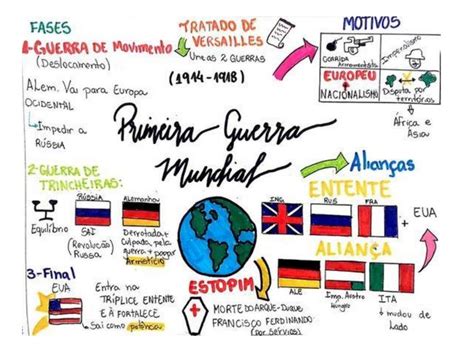 FASES
1-GUERRA DE Movimento
(Deslocamento)
ALem. Vai para Europa
OCIDENTAL
Impedir a
RÚSSIA
TRATADO DE
VERSAILLES
Une as 2 GUERRAS
(1914-1918)
MOTIVOS
CORRIDA
Armamentista
Imperialismo
EUROPEU
NACIONALISMO
Disputa por
territórios
África e
Ásia
Primeira Guerra
Mundial
2-GUERRA DE
TRINCHEIRAS:
Equilíbrio
RÚSSIA
SAÍ
(Revolução)
Russa
Alemanha
Derrotada +
Culpada, pela
guerra + pagar
Armistício
Alianças
ENTENTE
ING
RUS
FRA
+ EUA
ALIANÇA
ALE
Imp. Austro
Húngaro
ITA
mudou de
Lado
3-Final
EUA
Entra na
TRÍPLICE ENTENTE
E À FORTALECE
Sai como potência
ESTOPIM
MORTE DO ARQUE-Duque
FRANCISCO FERDINANDO
(por Sérvios)